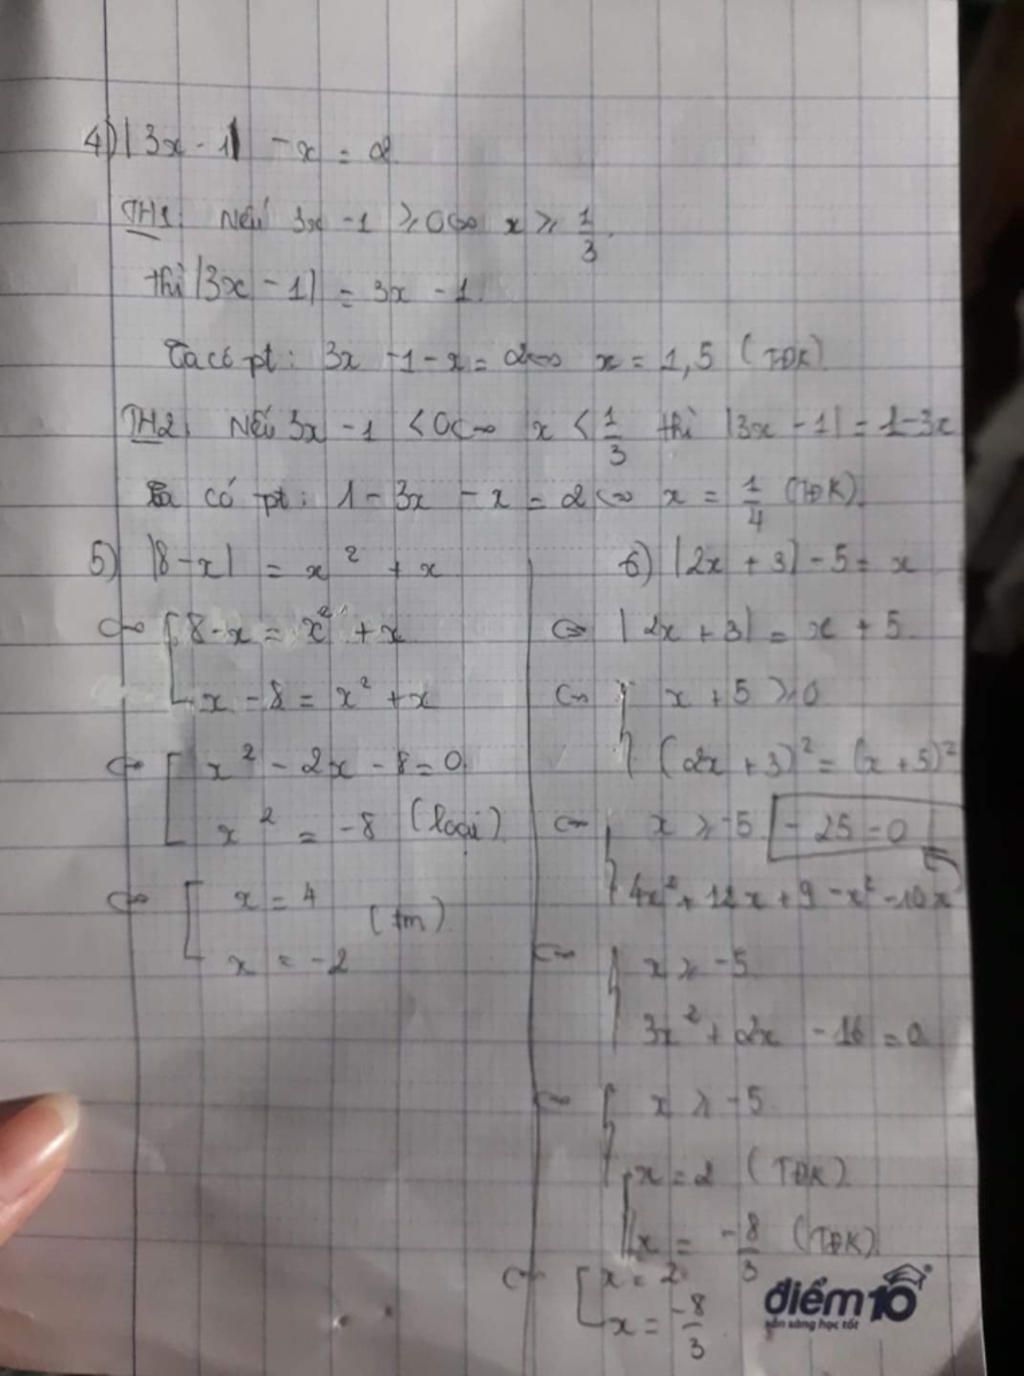 4) |3x - 1| - x = 2
TH1: Nếu 3x - 1 ≥ 0 <=> x ≥ 1/3.
thì |3x - 1| = 3x - 1.
Ta có pt: 3x - 1 - x = 2 <=> x = 1,5 (TĐK)
TH2: Nếu 3x - 1 < 0 <=> x < 1/3 thì |3x - 1| = 1 - 3x
Ta có pt: 1 - 3x - x = 2 <=> x = 1/4 (TĐK)
5) |8 - x| = x² + x
<=> [ 8 - x = x² + x
x - 8 = x² + x
<=> [ x² - 2x - 8 = 0
x² = -8 (loại)
<=> [ x = 4
(tm)
x = -2
6) |2x + 3| - 5 = x
<=> |2x + 3| = x + 5
<=> { x + 5 ≥ 0
(2x + 3)² = (x + 5)²
<=> { x ≥ -5 - 25 = 0
4x² + 12x + 9 - x² - 10x
<=> { x ≥ -5
3x² + 2x - 16 = 0
<=> { x ≥ -5
[ x = 2 (TĐK)
x = -8/3 (TĐK)
<=> [ x = 2
x = -8/3
điểm10
sẵn sàng học tốt